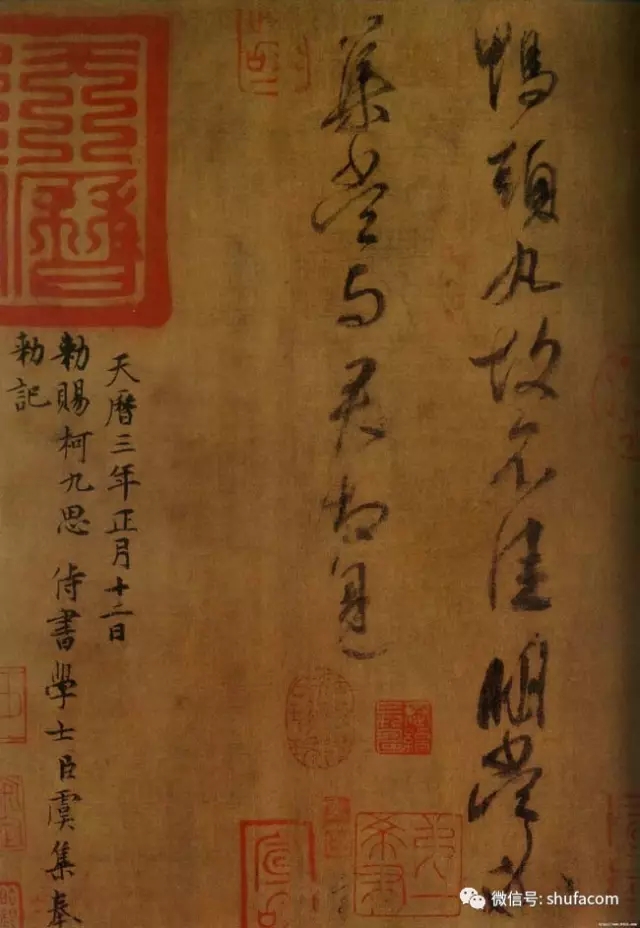 鴨頭丸故不佳明當必
集當与君相見
天曆
天曆三年正月十二日
勅賜柯九思侍書學士臣虞集奉
勅記
微信号: shufacom